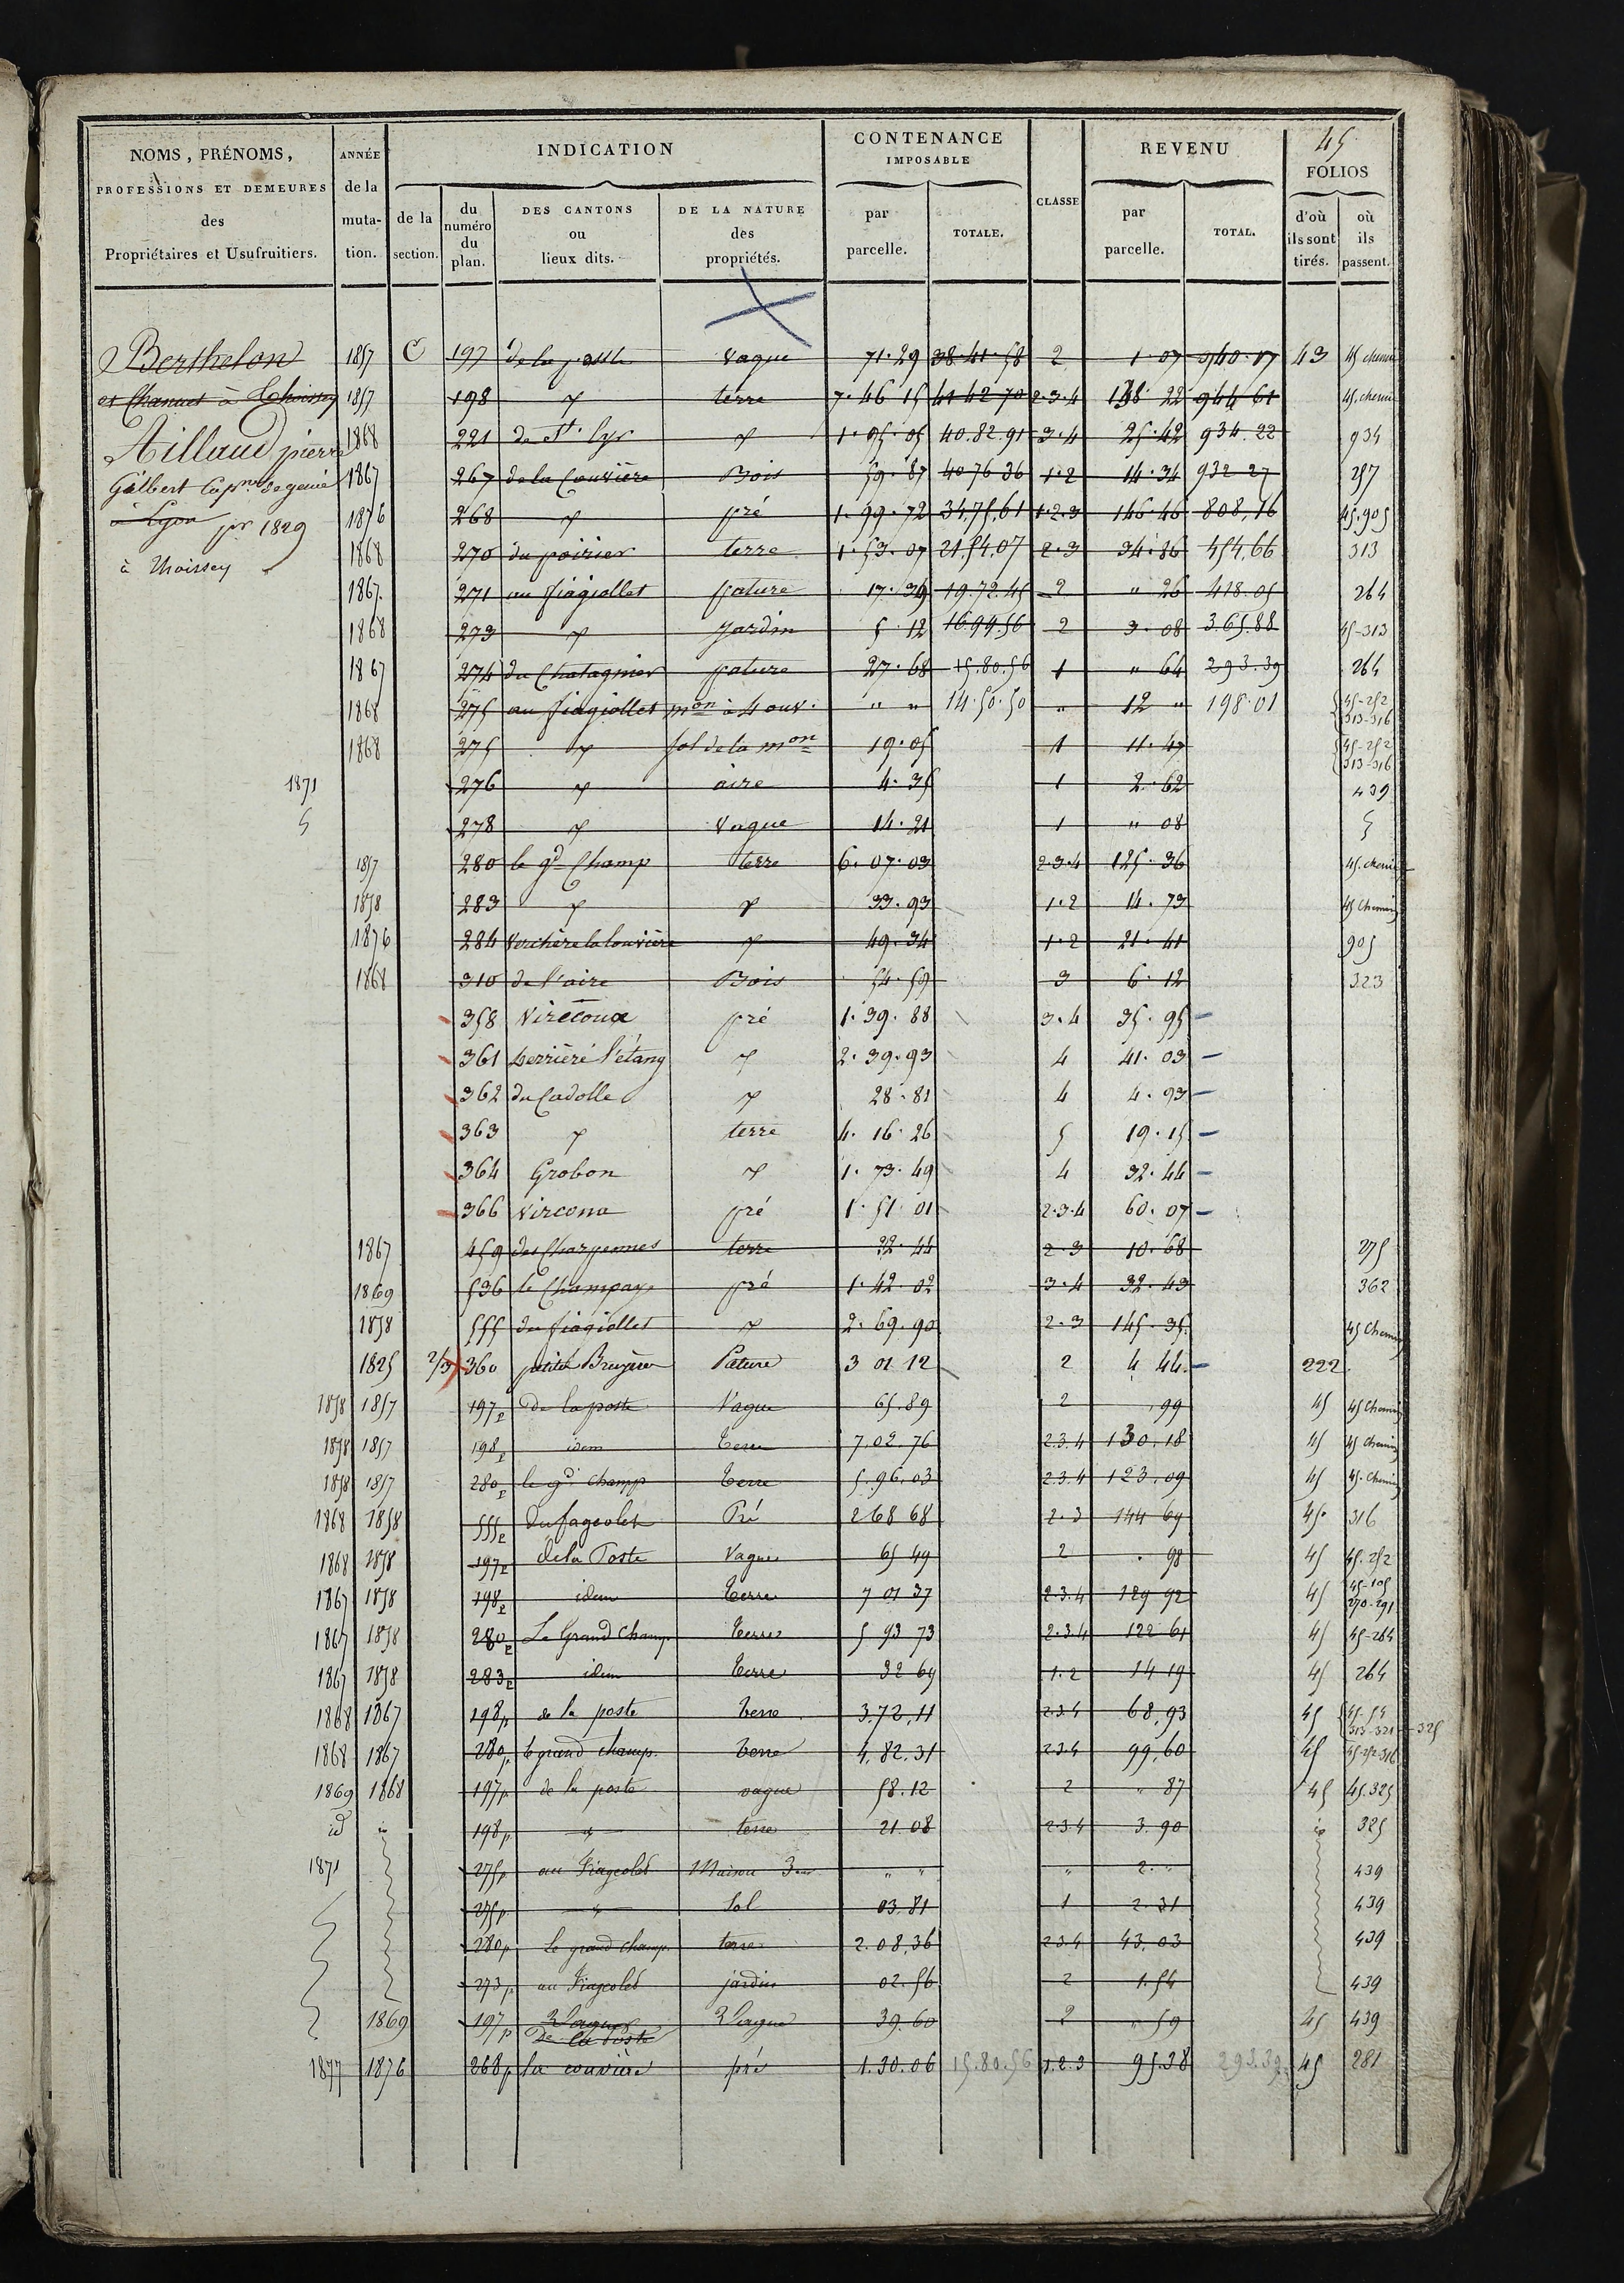 45
NOMS, PRÉNOMS, PROFESSIONS ET DEMEURES des Propriétaires et Usufruitiers. ANNÉE de la muta- tion. INDICATION de la section. du numéro du plan. DES CANTONS ou lieux dits. DE LA NATURE des propriétés. CONTENANCE IMPOSABLE par parcelle. TOTALE. CLASSE REVENU par parcelle. TOTAL. FOLIOS d'où ils sont tirés. où ils passent.
Berthelon 1857 C 197 de la poste vague 71.29 38.41.58 2 1.07 940.17 43 45 chemin
et Chanuet à Thoissey 1857 198 terre 7.46 15 41 42 70 2.3.4 138 22 944 61 45. chemin
Aillaud pierre 1868 221 de St. Cyr 1.05.05 40.82.91 3.4 25.42 934.22 934
Gilbert Capne de genie 1867 267 de la Couvière Bois 59.87 40 76 36 1.2 14.34 932 27 257
à Lyon pr 1829 1876 268 pré 1.99.72 34,75,61 1.2.3 146.46 808,16 45.905
à Thoissey 1868 270 du poirier terre 1.53.07 21,54,07 2.3 34.86 454,66 313
1867. 271 au fiagiollet pature 17.39 19.72.45 2 " 26 418.05 264
1868 273 Jardin 5.12 16.99.56 2 3.08 365.88 45-313
1867 274 du Chatagnier pature 27.68 15.80.56 1 " 64 293.39 264
1868 275 au fiagiollet mon à 4 ouv. " " 14.50.50 " 12 " 198.01 45-252 313-316
1868 275 sol de la mon 19.05 1 11.47 45-252 313-316
1871 276 aire 4.35 1 2.62 439
278 Vague 14.21 1 " 08
1857 280 le gd Champ terre 6.07.03 2.3.4 125.36 45. chemin
1858 283 33.93 1.2 14.73 45 Chemin
1876 284 Verchère la Couvière 49.34 1.2 21.41 905
1868 310 de l'aire Bois 54.59 3 6.12 323
358 Virecoux pré 1.39.88 3.4 35.95
361 Derrière l'étang 2.39.93 4 41.03
362 du Cadolle 28.81 4 4.93
363 terre 4.16.26 5 19.15
364 Grobon 1.73.49 4 32.44
366 Vircona pré 1.51 01 2.3.4 60.07
1867 459 des Charpennes terre 32.44 2.3 10.68 275
1869 536 le Champay pré 1.42.02 3.4 32.43 362
1858 555 du fiagiollet 2.69.90 2.3 145.35 45 Chemin
1825 2/3 360 petites Bruyères Pature 3 01 12 2 4 44. 222
1858 1857 197p De la poste Vague 65.89 2 ,99 45 45 Chemin
1858 1857 198p idem Terre 7.02.76 2.3.4 130.18 45 45 Chemin
1858 1857 280p le gd champ Terre 5.96.03 2.3.4 123,09 45 45. Chemin
1868 1858 555p du fageolet Pré 2 68 68 2.3 144 69 45. 316
1868 1858 197p de la Poste Vague 65 49 2 . 98 45 45.252
1867 1858 198p idem Terre 7 01 37 2.3.4 129 92 45 45-105 270-291
1867 1858 280p Le Grand Champ. Terre 5 93 73 2.3.4 122 61 45 45-264
1867 1858 283p idem Terre 32 69 1.2 14 19 45 264
1868 1867 198p de la poste terre 3,72,11 2.3.4 68,93 45 45.54 313-321-325
1868 1867 280p le grand champ. terre 4,82.31 2.3.4 99,60 45 45-252-316
1869 1868 197p de la poste vague 58.12 2 " 87 45 45.325
id 198p terre 21.08 2.3.4 3.90 325
1871 275p au Fiageolet Maison 3 " " " 2. " 439
275p Sol 03.81 1 2.31 439
280p le grand champ. terre 2.08,36 2.3.4 43,03 439
273p au Fiageolet jardin 02.56 2 1.54 439
1869 197p De la Poste Vague 39.60 2 " 59 45 439
1877 1876 268p la couvière pré 1.30.06 15.80.56 1.2.3 95.38 293.39 45 281